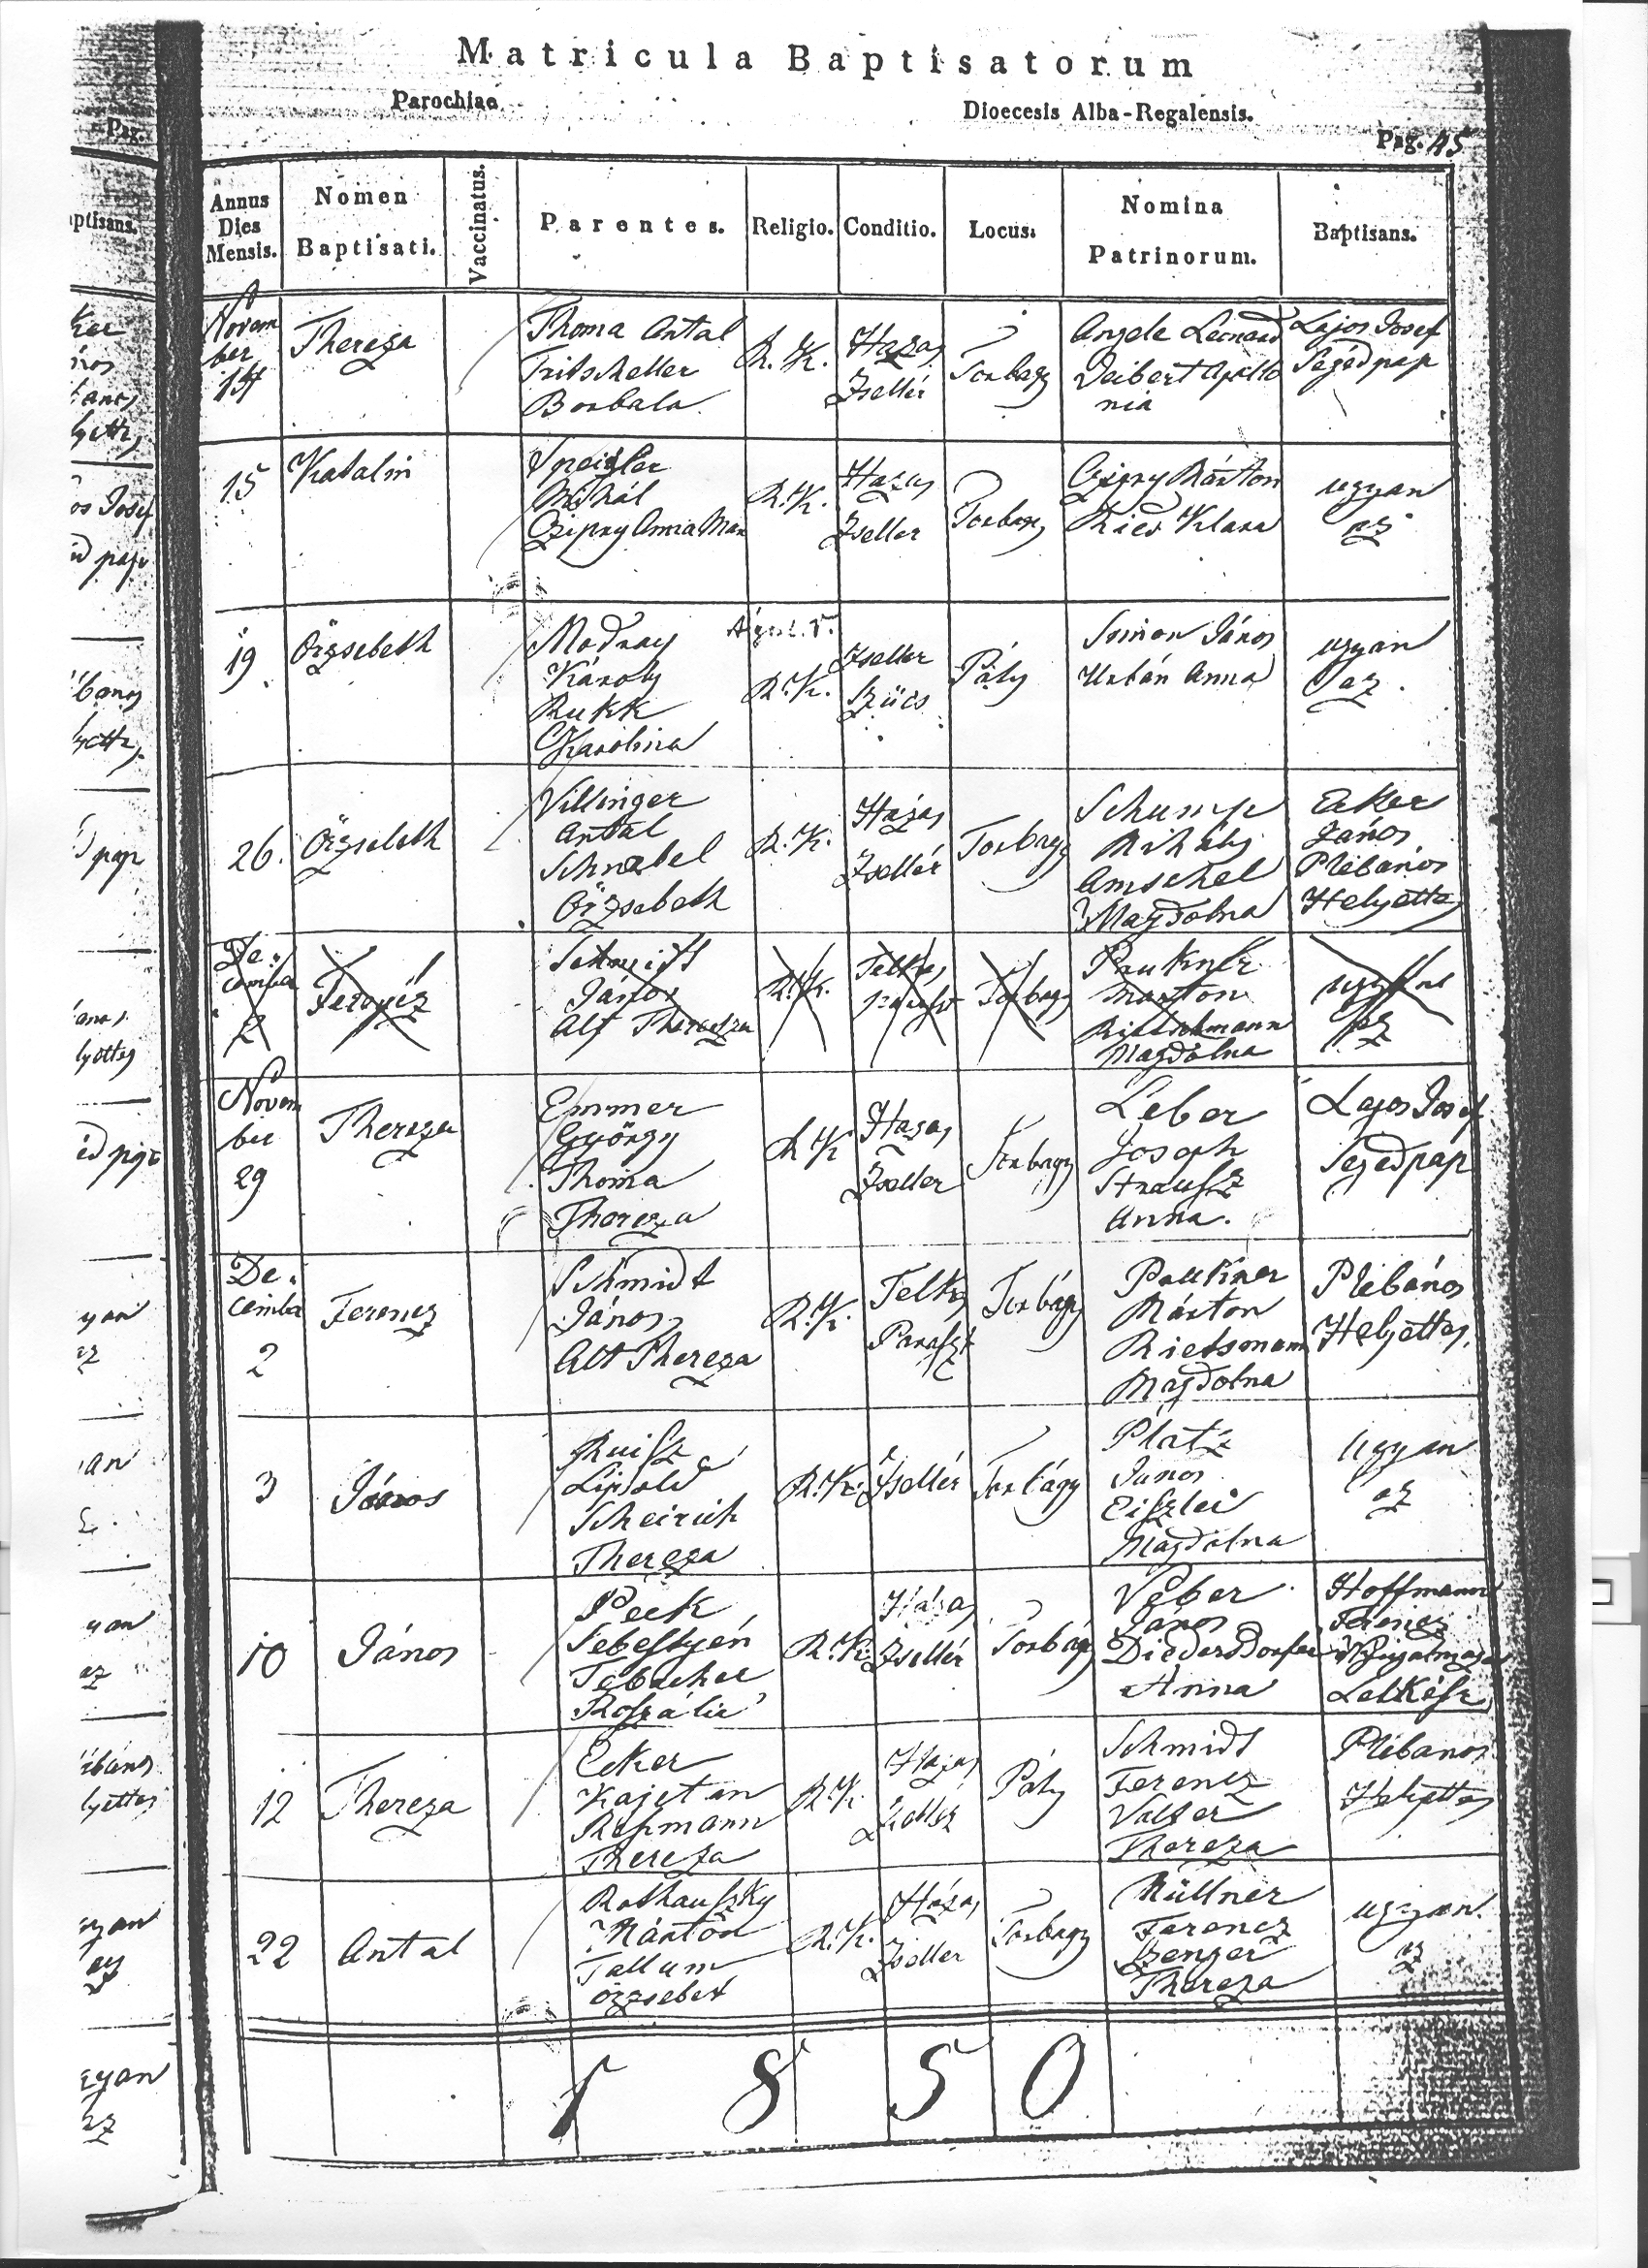 Matricula Baptisatorum
Parochiae Dioecesis Alba-Regalensis.
Pag. 45
Annus Dies Mensis.
Nomen Baptisati.
Vaccinatus.
Parentes.
Religio.
Conditio.
Locus.
Nomina Patrinorum.
Baptisans.
Novem
ber
14
Thereza
Thoma Antal
Fritscheller
Borbala
R. K.
Hazas
Zsellér
Torbagy
Angele Leonard
Deibert Apollo
nia
Lajos Josef
Segédpap
15
Katalin
Mihál
Czipry Anna Mar
R. K.
Hazas
Zseller
Torbagy
Czipry Márton
Ried Klara
ugyan
az
19
Örzsebeth
Modray
Károly
Rukk
Karolina
R. K.
Zseller
Szücs
Páty
Simon János
Urbán Anna
ugyan
az.
26.
Örzsebeth
Villinger
Antal
Schnabel
Örzsebeth
R. K.
Házas
Zsellér
Torbagy
Schump
Mihály
Amschel
Magdolna
Eker
János
Plébános
Helyettes
De.
cember
2
Ferencz
Schmidt
János
Alt Therezia
R. K.
Telkes
Paraszt
Torbagy
Paukner
Marton
Rietschmann
Magdolna
ugyan
az
Novem
ber
29
Thereza
Emmer
György
Thoma
Thereza
R K
Hazas
Zseller
Torbagy
Leber
Joseph
Strausz
Anna.
Lajos Josef
Segedpap
De.
cember
2
Ferencz
Schmidt
János
Alt Thereza
R. K.
Telkes
Paraszt
Torbágy
Paukner
Márton
Rietsmann
Magdolna
Plébános
Helyettes.
3
János
Ruisz
Lipold
Scheirich
Thereza
R. K.
Zsellér
Torbágy
Platz
János
Eiszlei
Magdolna
ugyan
az
10
János
Peck
Sebestyén
Rozália
R. K.
Házas
Zsellér
Torbágy
Véber
János
Diedersdorfer
Anna
Hoffmann
Ferencz
Lelkész
12
Thereza
Ecker
Kajetan
Thereza
R K.
Hazas
Páty
Schmidt
Ferencz
Valter
Thereza
Plébanos
Helyettes
22
Antal
Rothauszky
Márton
Tallum
Özzsebet
R. K.
Házas
Zseller
Torbagy
Müllner
Ferencz
Benger
Thereza
ugyan
az
1850